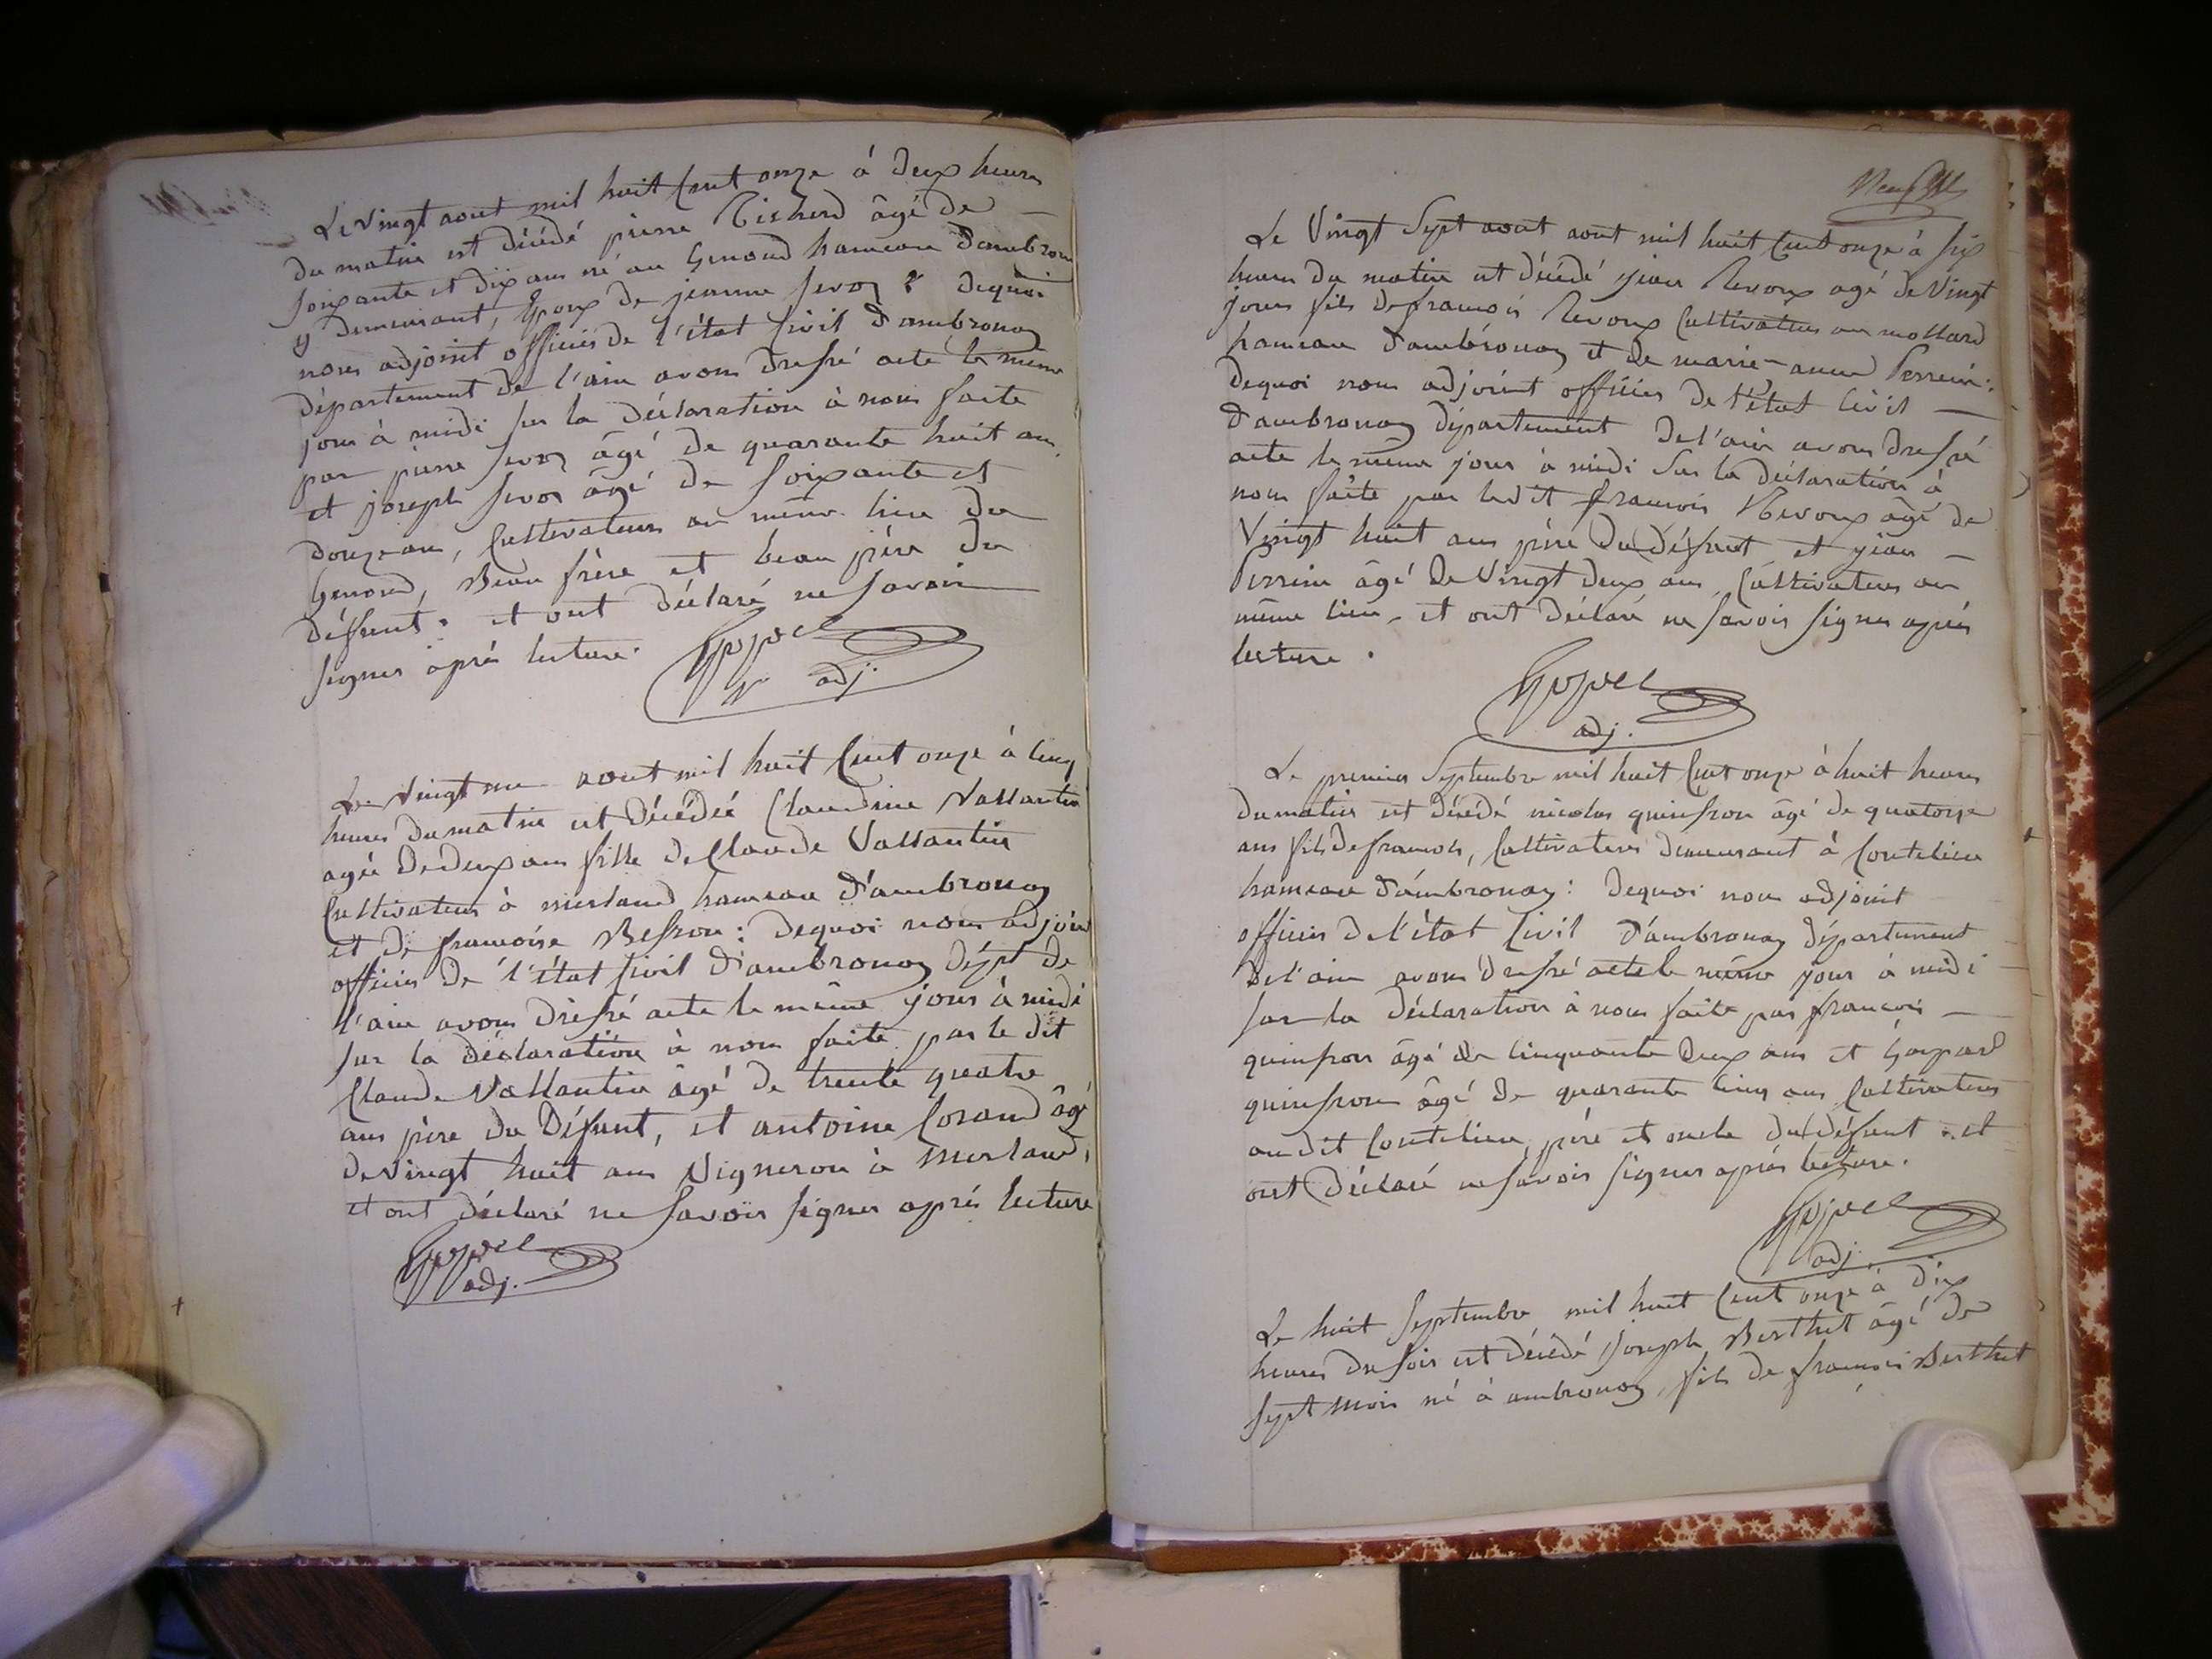 Le vingt aout mil huit Cent onze à deux heures
du matin est décédé pierre Ticherd âgé de
soixante et dix ans né au Genoud hameau d'ambronay
y demeurant, Epoux de jeanne Sevoz : dequoi
nous adjoint officier de l'état Civil d'ambronay
département de l'ain avons dressé acte le meme
jour à midi sur la déclaration à nous faite
par pierre Sevoz âgé de quarante huit ans
et joseph Sevoz âgé de soixante et
douze ans, Cultivateurs au même lieu du
Genoud, Beau frère et beau père du
défunt. et ont déclaré ne savoir
signer après lecture.
adj.
Le vingt un aout mil huit Cent onze à Cinq
heures du matin est décédée Claudine Vallantin
agée de deux ans fille de Claude Vallantin
Cultivateur à merland hameau d'ambronay
et de françoise Besson : dequoi nous adjoint
officier de l'état Civil d'ambronay dépt de
l'ain avons dressé acte le même jour à midi
sur la déclaration à nous faite par le dit
Claude Vallantin âgé de trente quatre
ans père du Défunt, et antoine Corand âgé
de vingt huit ans Vigneron à Merland,
et ont déclaré ne savoir signer après lecture
adj.
Le Vingt Sept aout aout mil huit Cent onze à six
heures du matin est décédé jean Revoux agé de Vingt
jours fils de françois Revoux Cultivateur au mollard
hameau d'ambronay et de marie-anne Perrein :
dequoi nous adjoint officier de l'état Civil
d'ambronay département de l'ain avons dressé
acte le même jour à midi Sur la déclaration à
nous faite par ledit françois Revoux âgé de
Vingt huit ans père du défunt et jean
Perrein âgé de Vingt deux ans, Cultivateurs au
même lieu, et ont déclaré ne savoir signer après
lecture.
adj.
Le premier Septembre mil huit Cent onze à huit heures
du matin est décédé nicolas quinson âgé de quatorze
ans fils de francois, Cultivateur demeurant à Coutelieu
hameau d'ambronay : dequoi nous adjoint
officier de l'état Civil d'ambronay département
de l'ain avons dressé acte le même jour à midi
sur la déclaration à nous faite par francois
quinson âgé de cinquante deux ans et Gaspard
quinson âgé de quarante cinq ans Cultivateurs
au dit Coutelieu, père et oncle du défunt. et
ont déclaré ne savoir signer après lecture.
adj.
Le huit Septembre mil huit Cent onze à dix
heures du soir est décédé joseph Berthet âgé de
sept mois né à ambronay, fils de françois Berthet